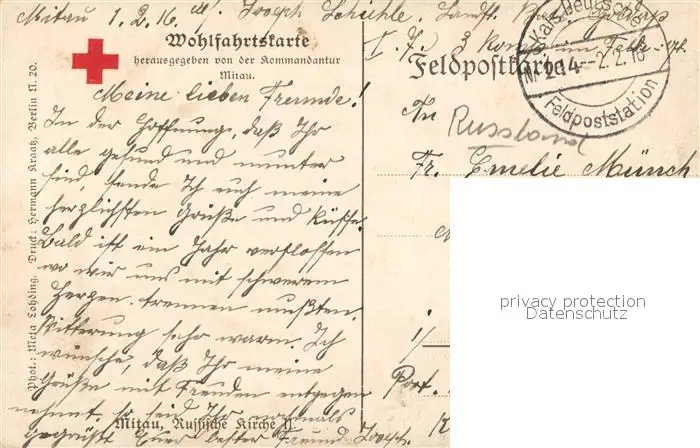 Mitau 1.2.16.
Joseph Schiehle, Landst.
I. 7. 3 Komp.
Wohlfahrtskarte
herausgegeben von der Kommandantur
Mitau.
Feldpostkarte
Kais. Deutsche
Nr. 214 -- 2.2.16
Feldpoststation
Meine lieben Freunde!
In der Hoffnung, daß Ihr
alle gesund und munter
seid, sende Ich euch meine
herzlichsten Grüße und Küsse.
Bald ist ein Jahr verflossen
wo wir uns mit schwerem
Herzen trennen mußten.
Witterung sehr warm. Ich
wünsche, daß Ihr meine
Grüße mit Freuden entgegen
nehmt, so seid Ihr nochmals
gegrüßt Euer bester Freund Joseph.
Mitau, Russische Kirche II.
An
Russland
Fr. Emelie Münch
1/
Post.
privacy protection
Datenschutz
Phot.: Meta Lohding. Druck: Hermann Kraatz, Berlin N. 20.